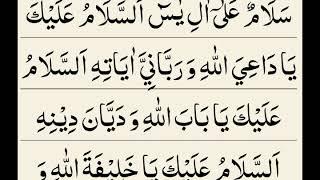 سَلَامٌ عَلٰىٓ اٰلِ يٰسٓ اَلسَّلَامُ عَلَيْكَ
يَا دَاعِيَ اللّٰهِ وَ رَبَّانِيَّ اٰيَاتِهِ اَلسَّلَامُ
عَلَيْكَ يَا بَابَ اللّٰهِ وَ دَيَّانَ دِيْنِهِ
اَلسَّلَامُ عَلَيْكَ يَا خَلِيْفَةَ اللّٰهِ وَ